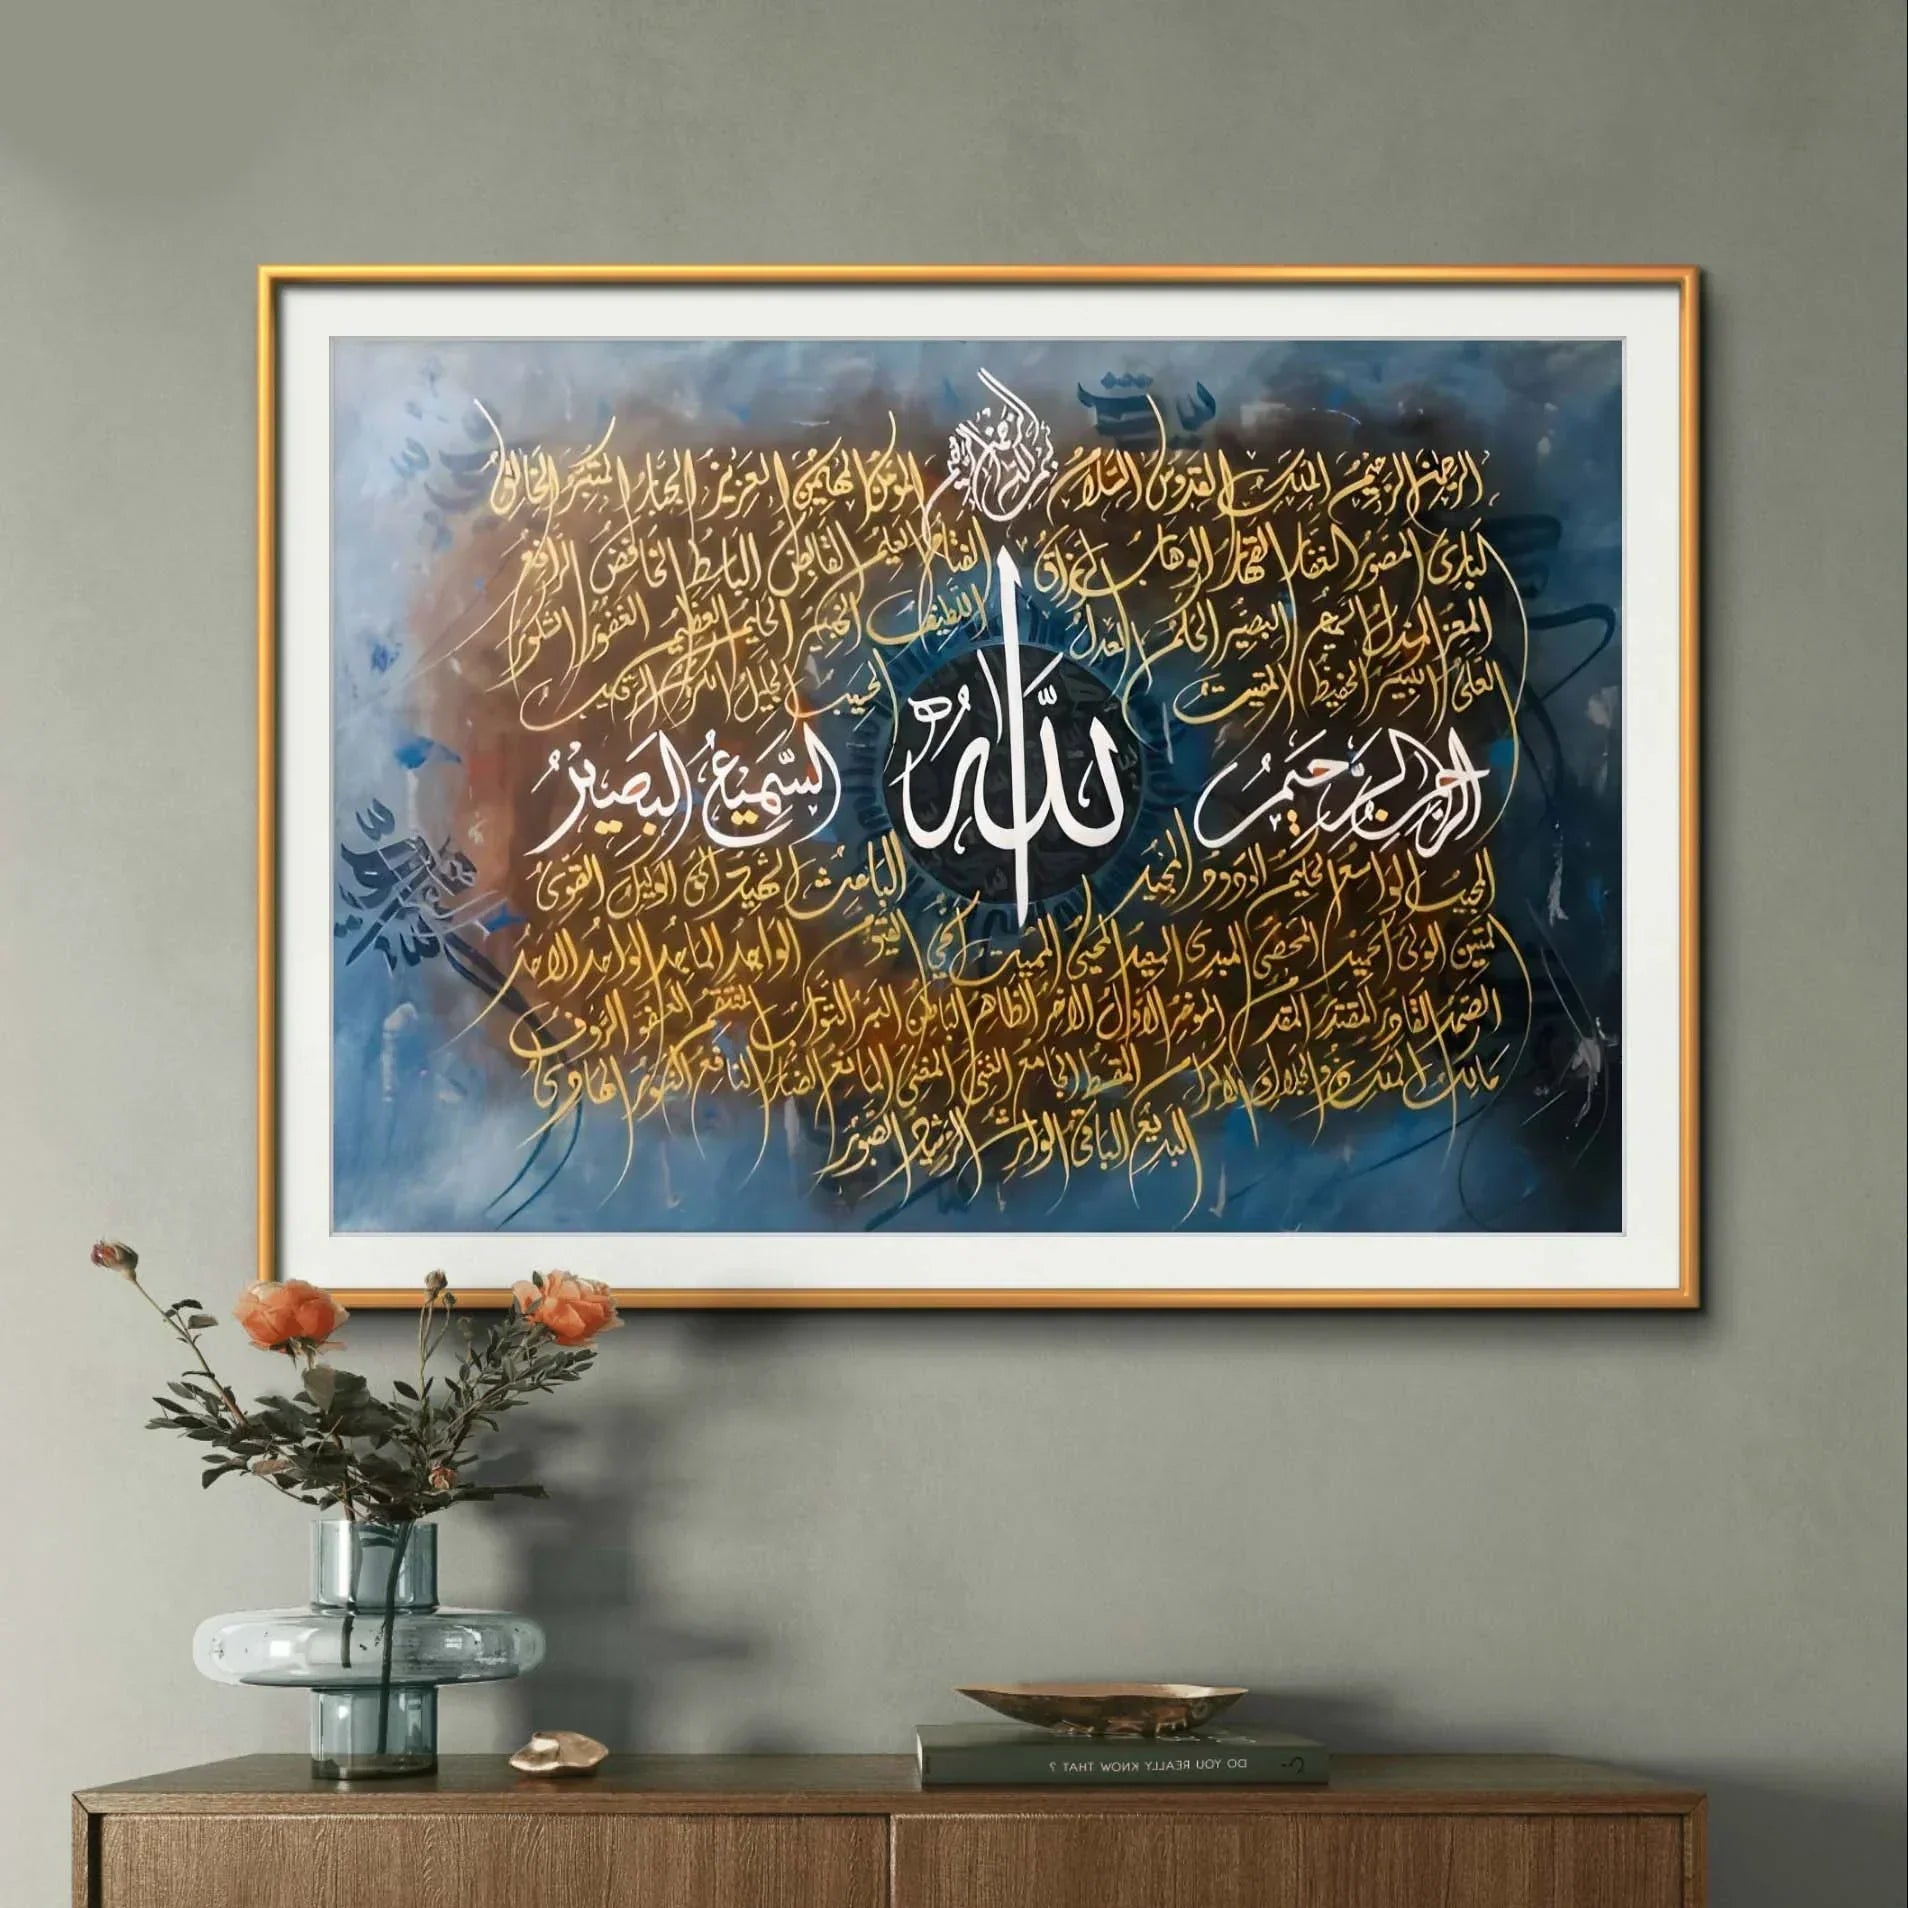 بسم الله الرحمن الرحيم
الرحمن الرحيم الملك القدوس السلام المؤمن المهيمن العزيز الجبار المتكبر الخالق
البارئ المصور الغفار القهار الوهاب الرزاق الفتاح العليم القابض الباسط الخافض الرافع
المعز المذل السميع البصير الحكم العدل اللطيف الخبير الحليم العظيم الغفور الشكور
العلي الكبير الحفيظ المقيت الحسيب الجليل الكريم الرقيب
الرحمن الرحيم الله السَّمِيعُ البَصِيرُ
المجيب الواسع الحكيم الودود المجيد الباعث الشهيد الحق الوكيل القوى
المتين الولي الحميد المحصي المبدئ المعيد المحيي المميت الحي القيوم الواجد الماجد الواحد الاحد
الصمد القادر المقتدر المقدم المؤخر الاول الاخر الظاهر الباطن البر التواب المنتقم العفو الرؤوف
مالك الملك ذو الجلال والاكرام المقسط الجامع الغني المغني المانع الضار النافع النور الهادي
البديع الباقي الوارث الرشيد الصبور
DO YOU REALLY KNOW THAT ?